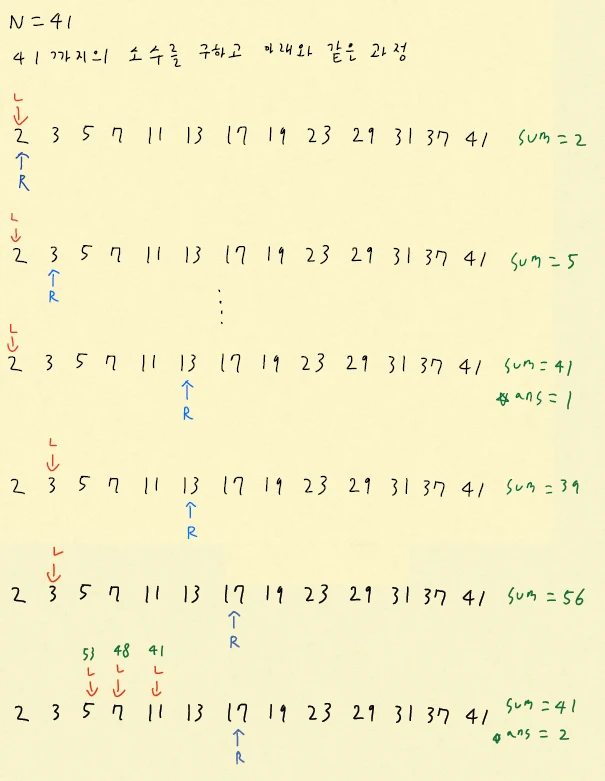 N = 41
41 까지의 소수를 구하고 아래와 같은 과정
L
2 3 5 7 11 13 17 19 23 29 31 37 41 sum = 2
R
L
2 3 5 7 11 13 17 19 23 29 31 37 41 sum = 5
R
L
2 3 5 7 11 13 17 19 23 29 31 37 41 sum = 41
R
* ans = 1
L
2 3 5 7 11 13 17 19 23 29 31 37 41 sum = 39
R
L
2 3 5 7 11 13 17 19 23 29 31 37 41 sum = 56
R
53 48 41
L L L
2 3 5 7 11 13 17 19 23 29 31 37 41 sum = 41
* ans = 2
R